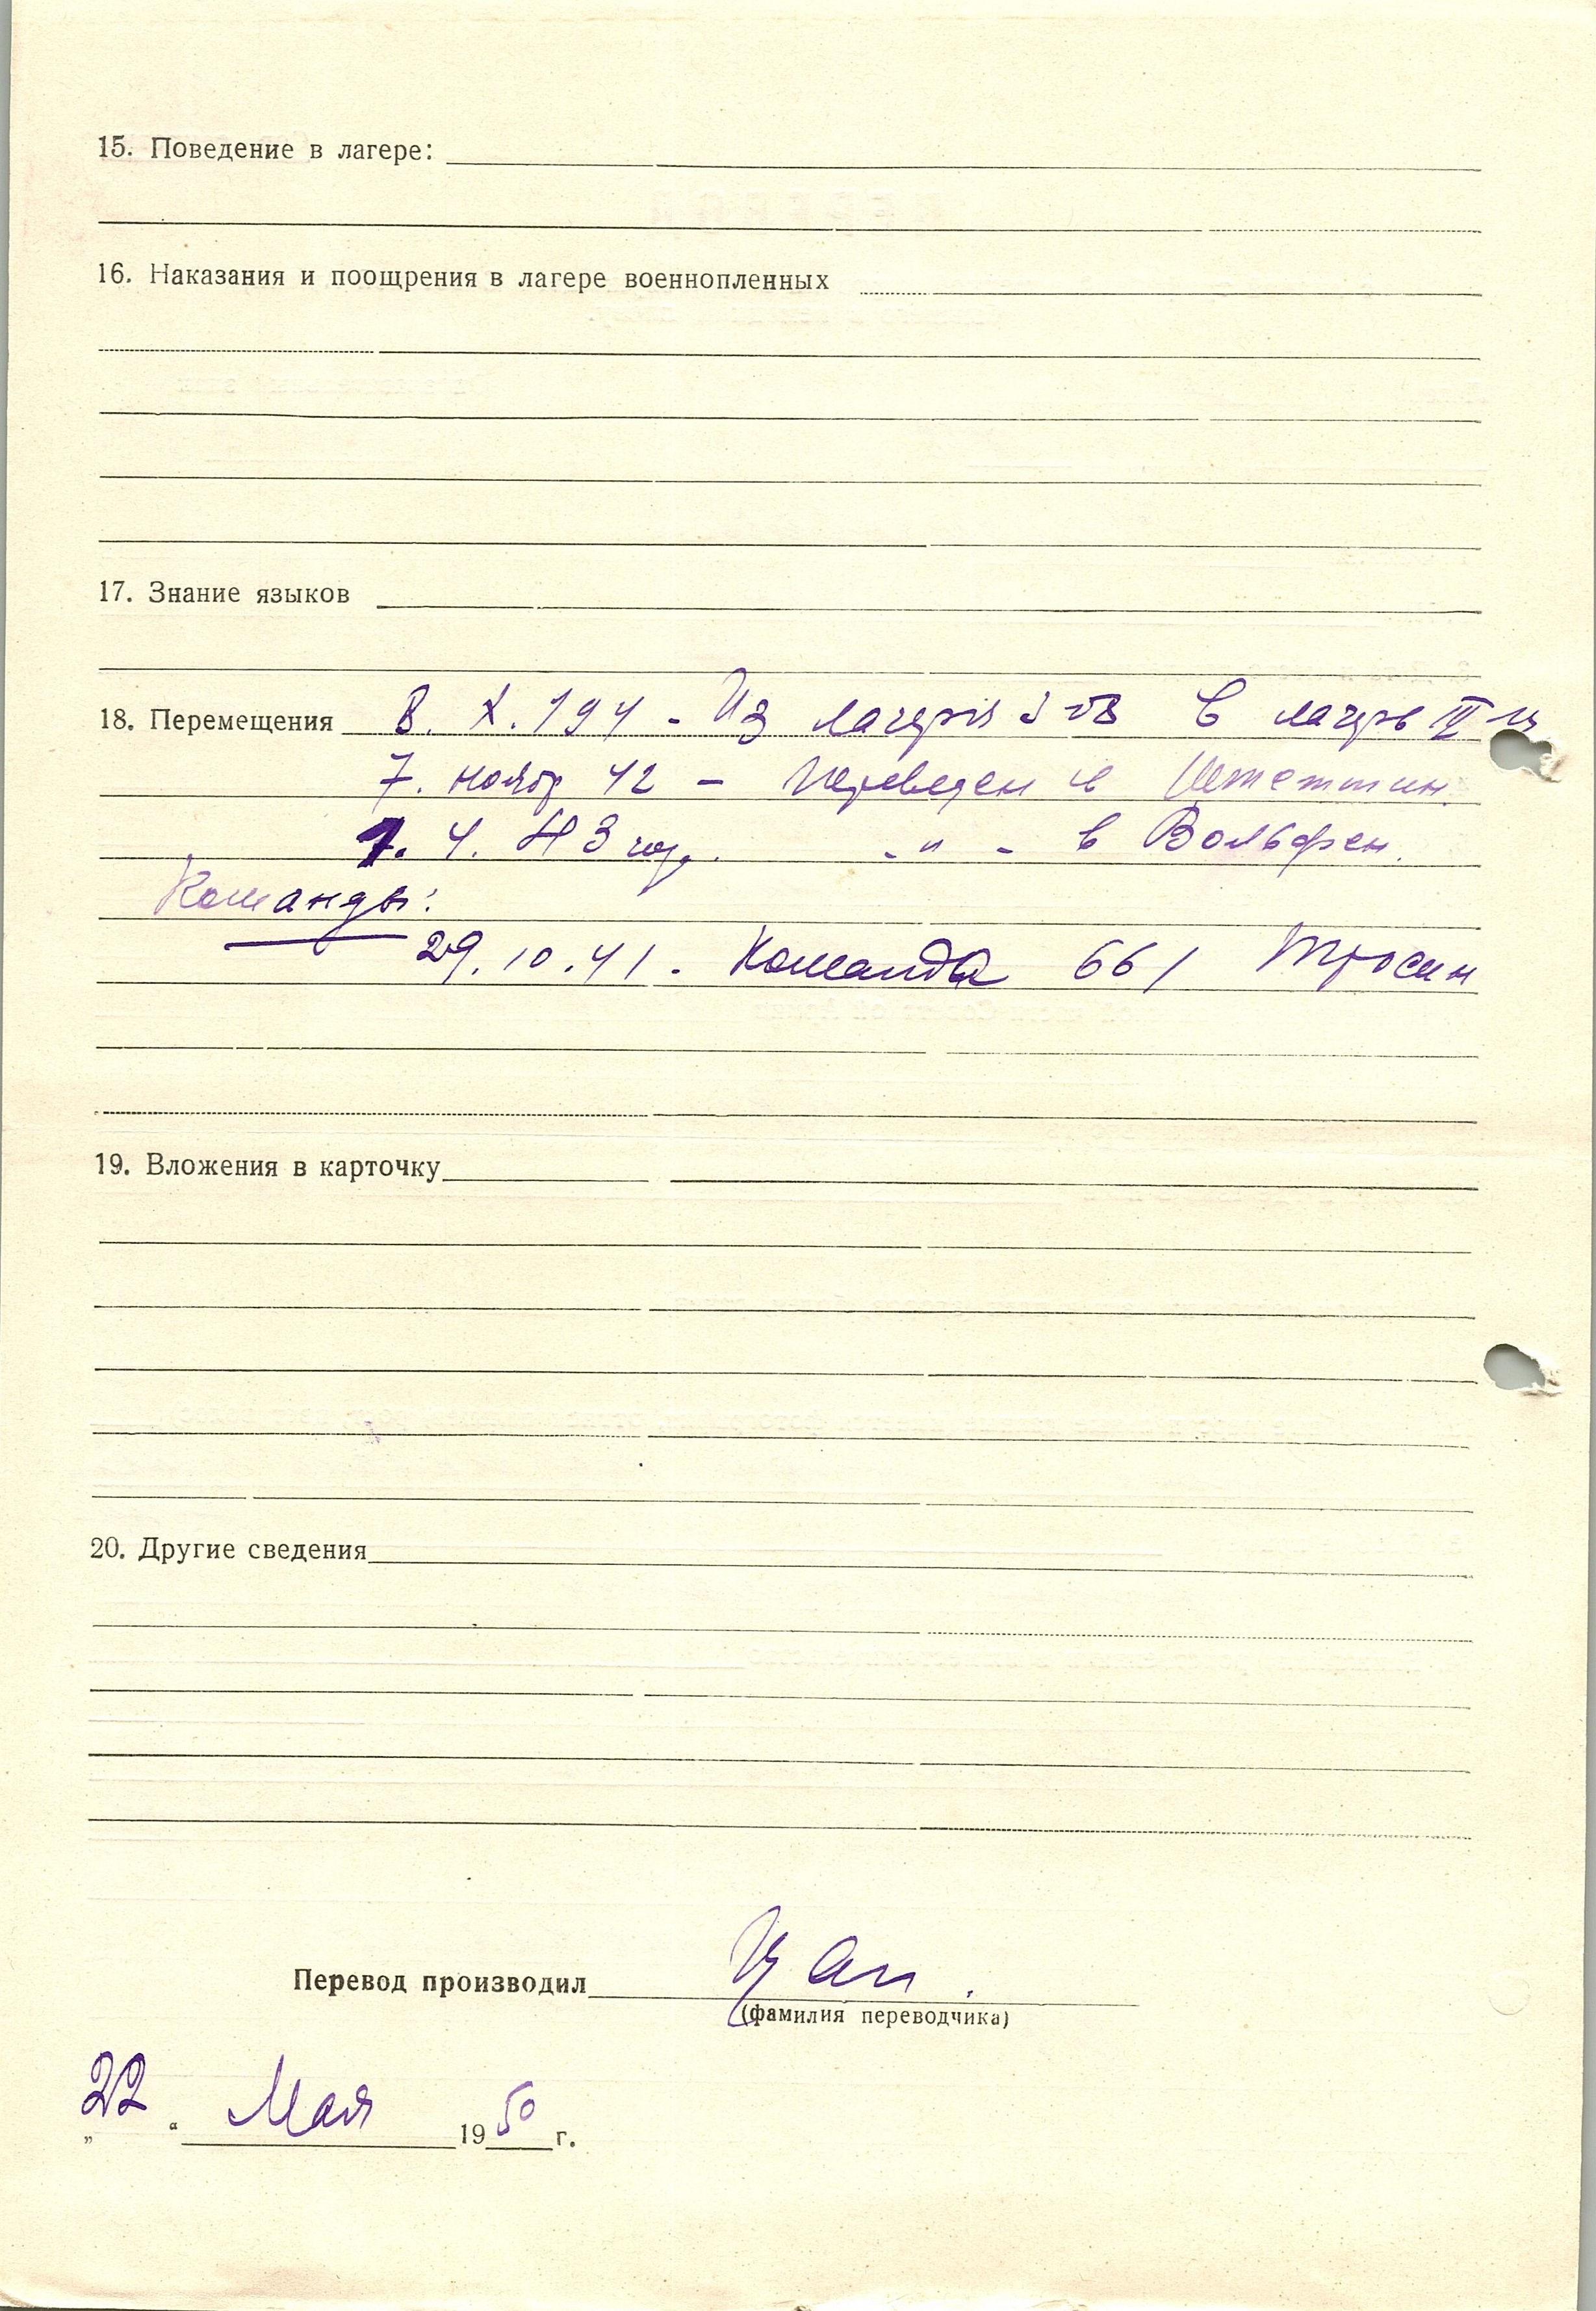 15. Поведение в лагере:
16. Наказания и поощрения в лагере военнопленных
17. Знание языков
18. Перемещения 8. X. 194 - Из лагеря в лагерь IV
7. нояб 42 - Переведен в Штеттин
1. 4. 43 год. - " - в Вольфен.
Команды:
29.10.41. Команда 661
19. Вложения в карточку
20. Другие сведения
Перевод производил
(фамилия переводчика)
„22“ Мая 1950 г.